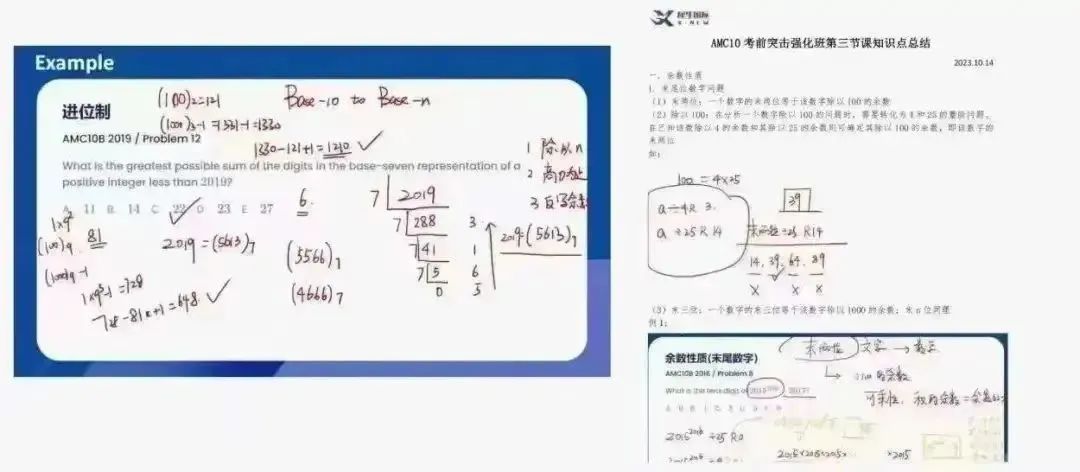 Example
进位制
AMC10B 2019 / Problem 12
What is the greatest possible sum of the digits in the base-seven representation of a
positive integer less than 2019?
A 11 B 14 C 22 D 23 E 27
(100)₂=121
Base-10 to Base-n
(1001)₃-1=1331-1=1330
1330-121+1=1210
1 除以n
2
3 反写余数
6
7 2019
7 288 3
7 41 1
7 5 6
0 5
2019=(5613)₇
1×9²
(100)₉ 81
2019=(5613)₇
(5566)₇
(4666)₇
(1000)₉-1
1×9³-1=728
728-81+1=648
X-NEW
AMC10考前突击强化班第三节课知识点总结
2023.10.14
一、余数性质
1. 末尾位数字问题
（1）末两位：一个数字的末两位等于该数字除以100的余数
（2）除以100：在分析一个数字除以100的问题时，需要转化为4和25的整除问题，
在已知该数除以4的余数和其除以25的余数则可确定其除以100的余数，即该数字的
末两位
如：
100=4×25
a÷4R 3
a÷25 R 14
39
末两位÷25 R14
14, 39, 64, 89
（3）末三位：一个数字的末三位等于该数字除以1000的余数；末n位同理
例1：
余数性质(末尾数字)
AMC10B 2016 / Problem 8
What is the tens digit of 2015²⁰¹⁶ - 2017?
末两位
文字
÷100 的余数
可乘性，
2015×2015×2015×
×2015